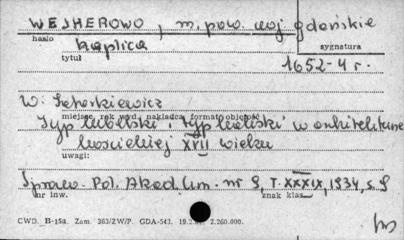 WEJHEROWO, m. pow. woj. gdańskie
hasło
kaplica
sygnatura
tytuł
1652-4 r.
W: Tatarkiewicz
miejsce, rok wyd., nakładca, format, objętość
Typ lubelski i typ kaliski w architekturze
kościelnej XVII wieku
uwagi:
Spraw. Pol. Akad. Um. nr 9, T. XXXIX, 1934, s. 9
nr inw.
znak klas.
CWD. B-15a. Zam. 363/ZW/P. GDA-543. 2.260.000.